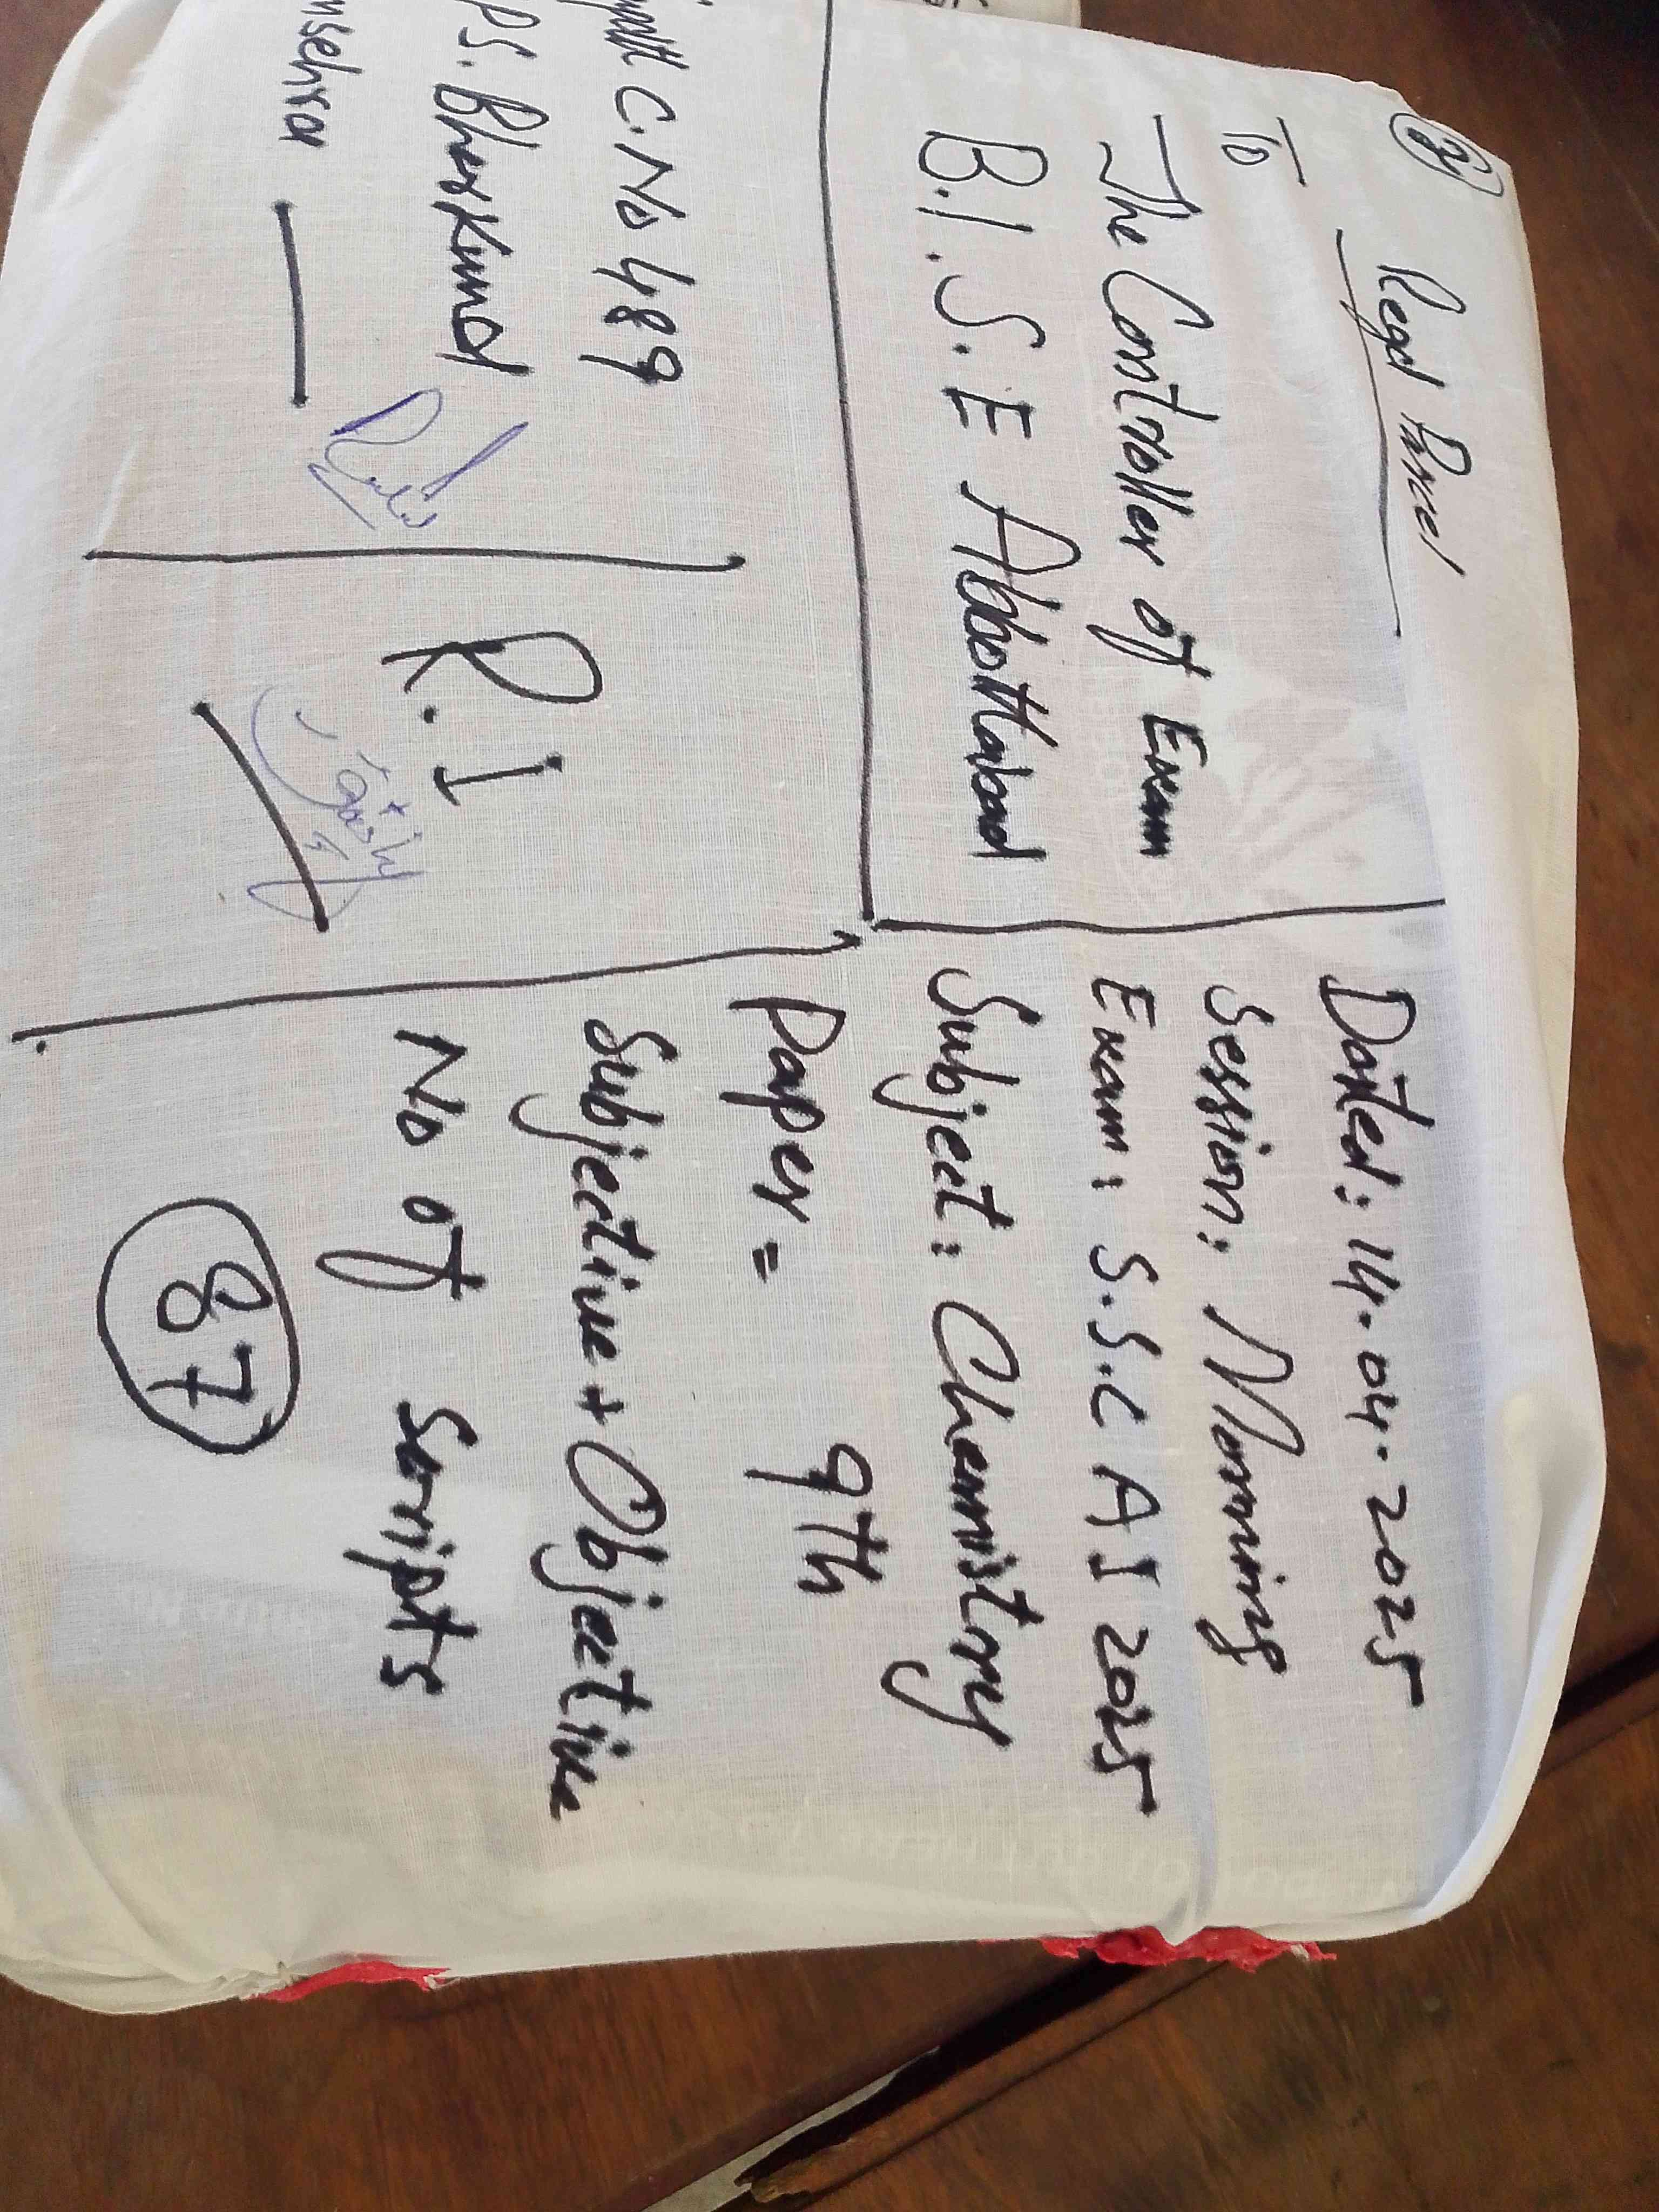 Regd Parcel
To
The Controller of Exam
B.I.S.E Abbottabad
Dated: 14.04.2025
Session: Morning
Exam: S.S.C A I 2025
Subject: Chemistry
Paper = 9th
Subjective + Objective
No of Scripts
87
C. No 489
PS. Bherkund
nsehra
R.I